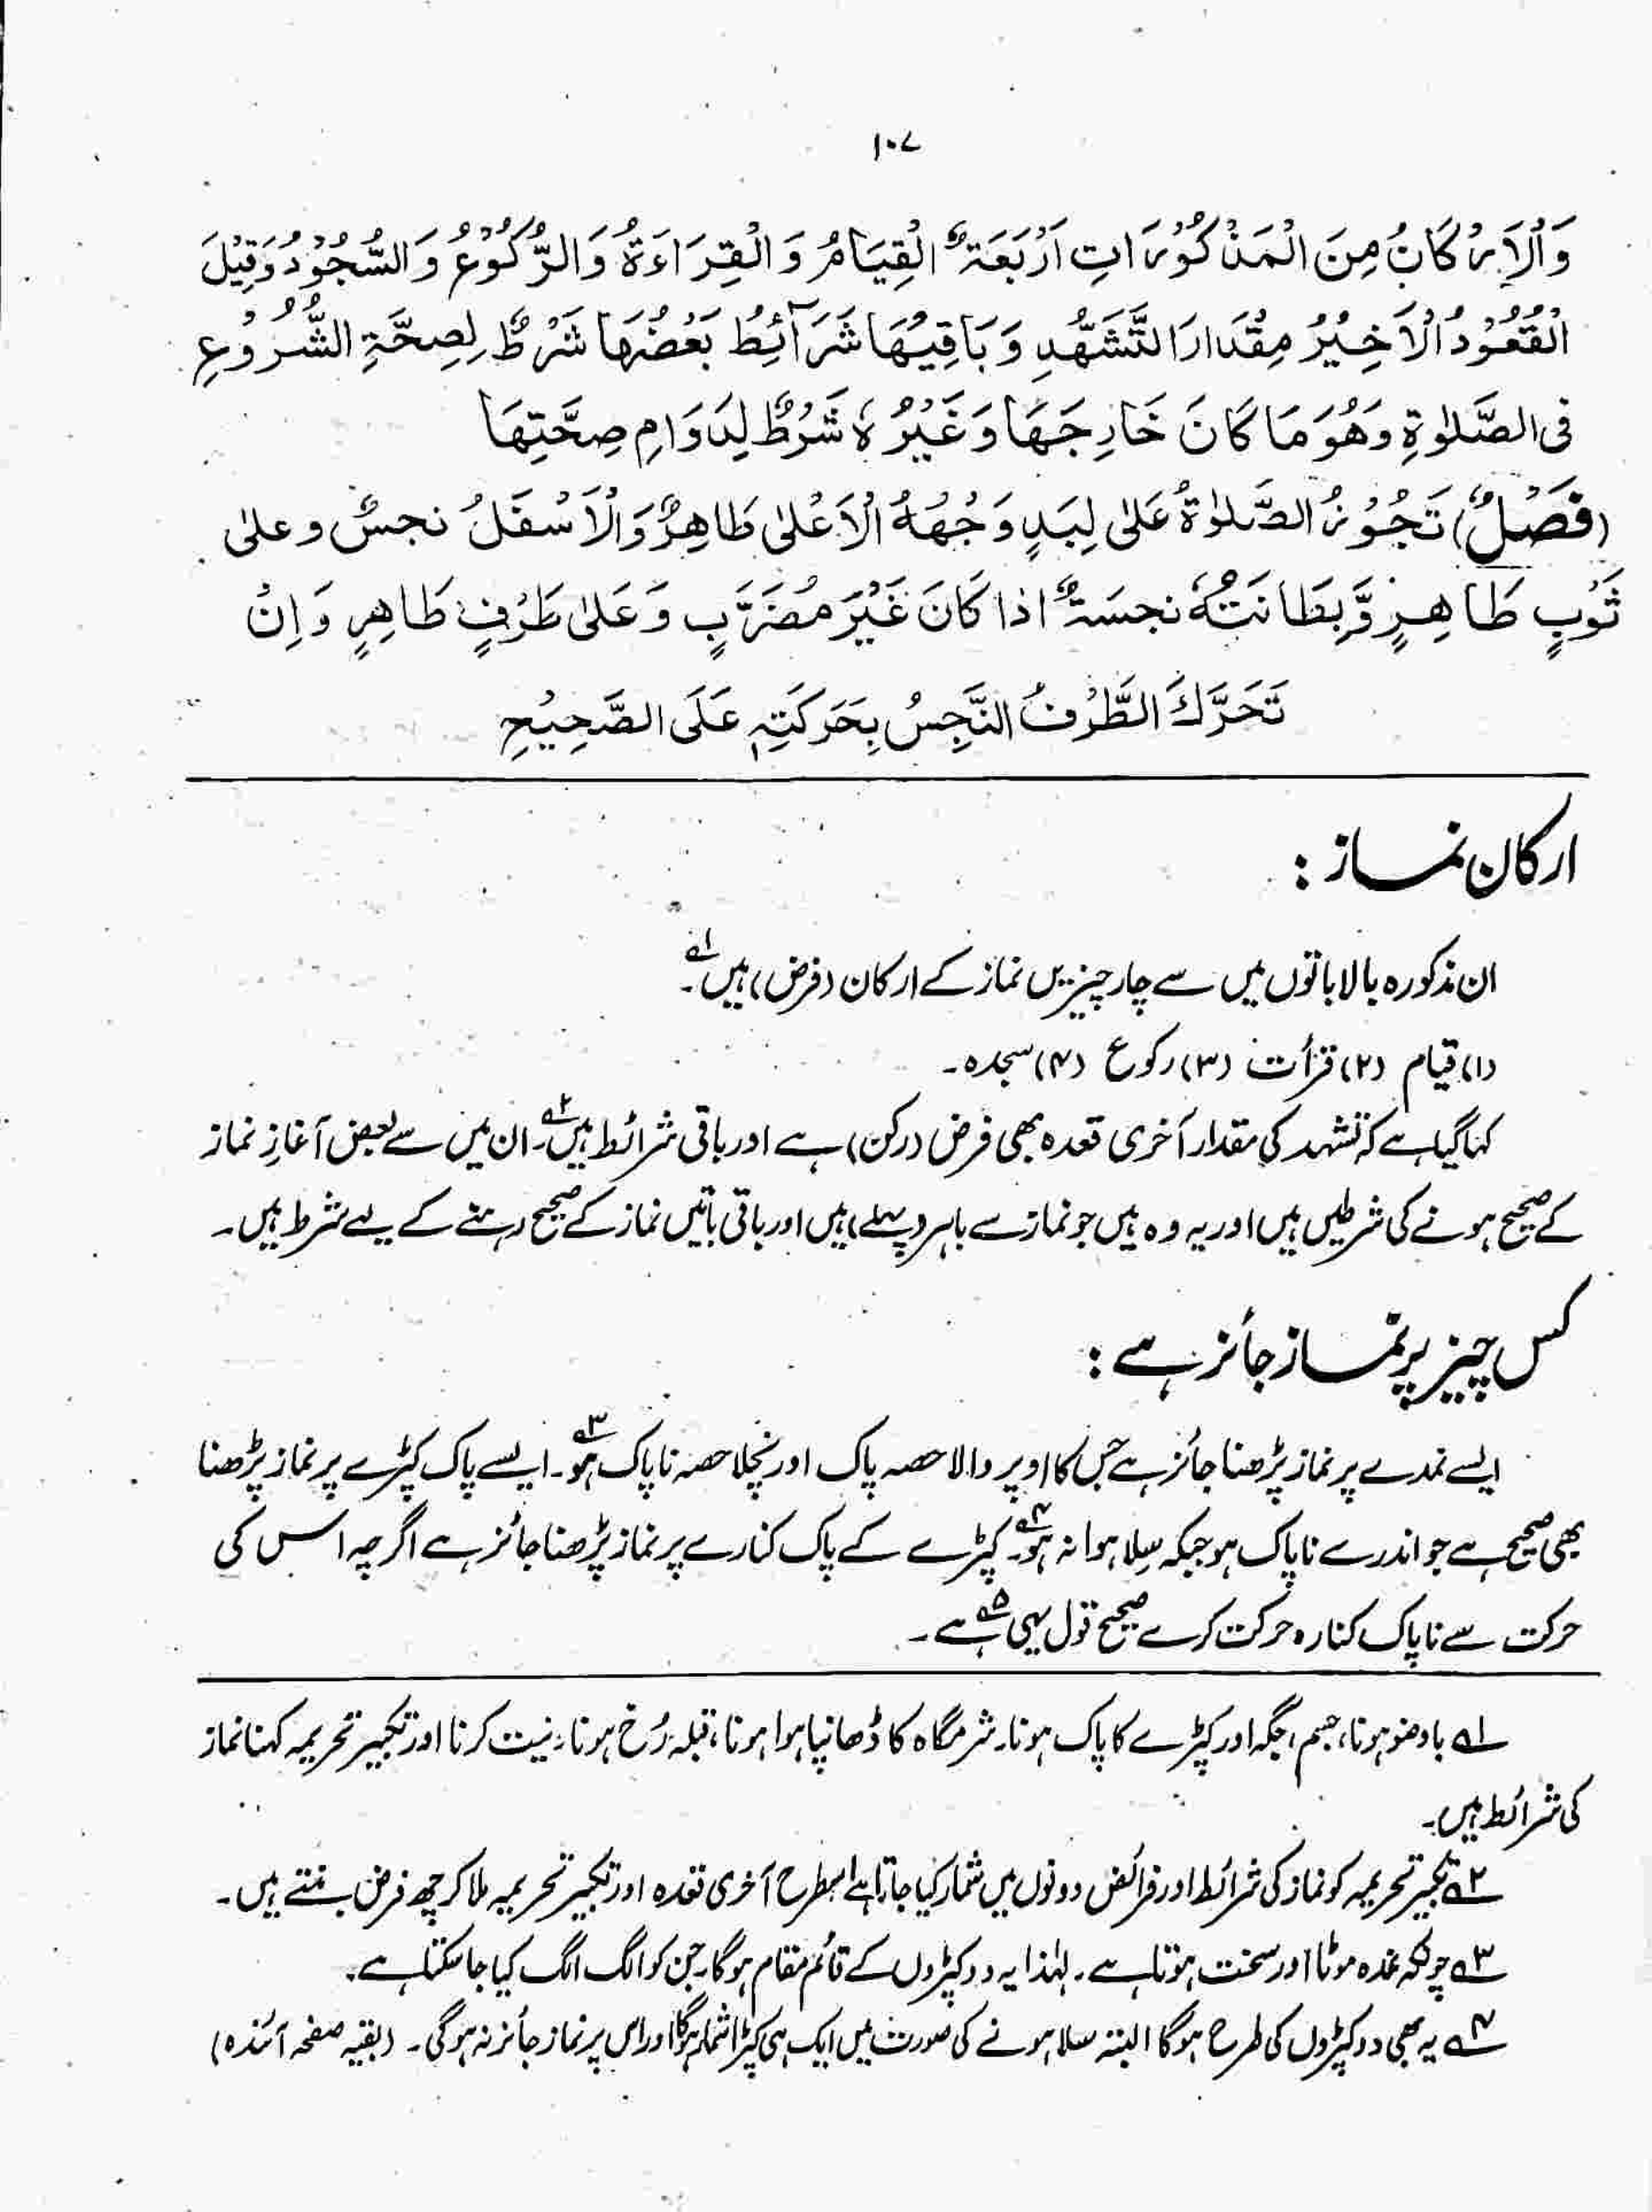 ۱۰۷
وَالْاَرْكَانُ مِنَ الْمَذْكُوْرَاتِ اَرْبَعَةٌ الْقِيَامُ وَ الْقِرَاءَةُ وَالرُّكُوْعُ وَ السُّجُوْدُ وَقِيْلَ
الْقُعُوْدُ الْاَخِيْرُ مِقْدَارَ التَّشَهُّدِ وَ بَاقِيْهَا شَرَآئِطُ بَعْضُهَا شَرْطٌ لِصِحَّةِ الشُّرُوْعِ
فِى الصَّلٰوةِ وَهُوَ مَا كَانَ خَارِجَهَا وَغَيْرُهٗ شَرْطٌ لِدَوَامِ صِحَّتِهَا
(فَصْلٌ) تَجُوْزُ الصَّلٰوةُ عَلٰى لِبَدٍ وَجْهُهُ الْاَعْلٰى طَاهِرٌ وَالْاَسْفَلُ نجسٌ وعلٰى
ثَوْبٍ طَاهِرٍ وَّبِطَانَتُهٗ نجسَةٌ اذا كَانَ غَيْرَ مُضَرَّبٍ وَ عَلٰى طَرْفٍ طَاهِرٍ وَ اِنْ
تَحَرَّكَ الطَّرْفُ النَّجِسُ بِحَرَكَتِهٖ عَلَى الصَّحِيْحِ
ارکان نماز :
ان مذکورہ بالا باتوں میں سے چار چیزیں نماز کے ارکان (فرض) ہیں ۱؎۔
(۱) قیام (۲) قرأت (۳) رکوع (۴) سجدہ ۔
کہا گیا ہے کہ تشہد کی مقدار آخری قعدہ بھی فرض (رکن) ہے اور باقی شرائط ہیں ۲؎۔ ان میں سے بعض آغازِ نماز
کے صحیح ہونے کی شرطیں ہیں اور یہ وہ ہیں جو نماز سے باہر (پہلے) ہیں اور باقی باتیں نماز کے صحیح رہنے کے لیے شرط ہیں ۔
کس چیز پر نماز جائز ہے :
ایسے نمدے پر نماز پڑھنا جائز ہے جس کا اوپر والا حصہ پاک اور نچلا حصہ ناپاک ہو ۳؎۔ ایسے پاک کپڑے پر نماز پڑھنا
بھی صحیح ہے جو اندر سے ناپاک ہو جبکہ سِلا ہوا نہ ہو ۴؎۔ کپڑے کے پاک کنارے پر نماز پڑھنا جائز ہے اگرچہ اس کی
حرکت سے ناپاک کنارہ حرکت کرے صحیح قول یہی ۵؎ ہے ۔
۱؎ باوضو ہونا، جسم، جگہ اور کپڑے کا پاک ہونا۔ شرمگاہ کا ڈھانپا ہوا ہونا، قبلہ رُخ ہونا، نیت کرنا اور تکبیر تحریمہ کہنا نماز
کی شرائط ہیں۔
۲؎ تکبیر تحریمہ کو نماز کی شرائط اور فرائض دونوں میں شمار کیا جاتا ہے اسطرح آخری قعدہ اور تکبیر تحریمہ ملا کر چھ فرض بنتے ہیں ۔
۳؎ چونکہ نمدہ موٹا اور سخت ہوتا ہے ۔ لہٰذا یہ دو کپڑوں کے قائم مقام ہوگا جن کو الگ الگ کیا جا سکتا ہے ۔
۴؎ یہ بھی دو کپڑوں کی طرح ہوگا البتہ سلا ہونے کی صورت میں ایک ہی کپڑا شمار ہوگا اور اس پر نماز جائز نہ ہوگی ۔ (بقیہ صفحہ آئندہ)